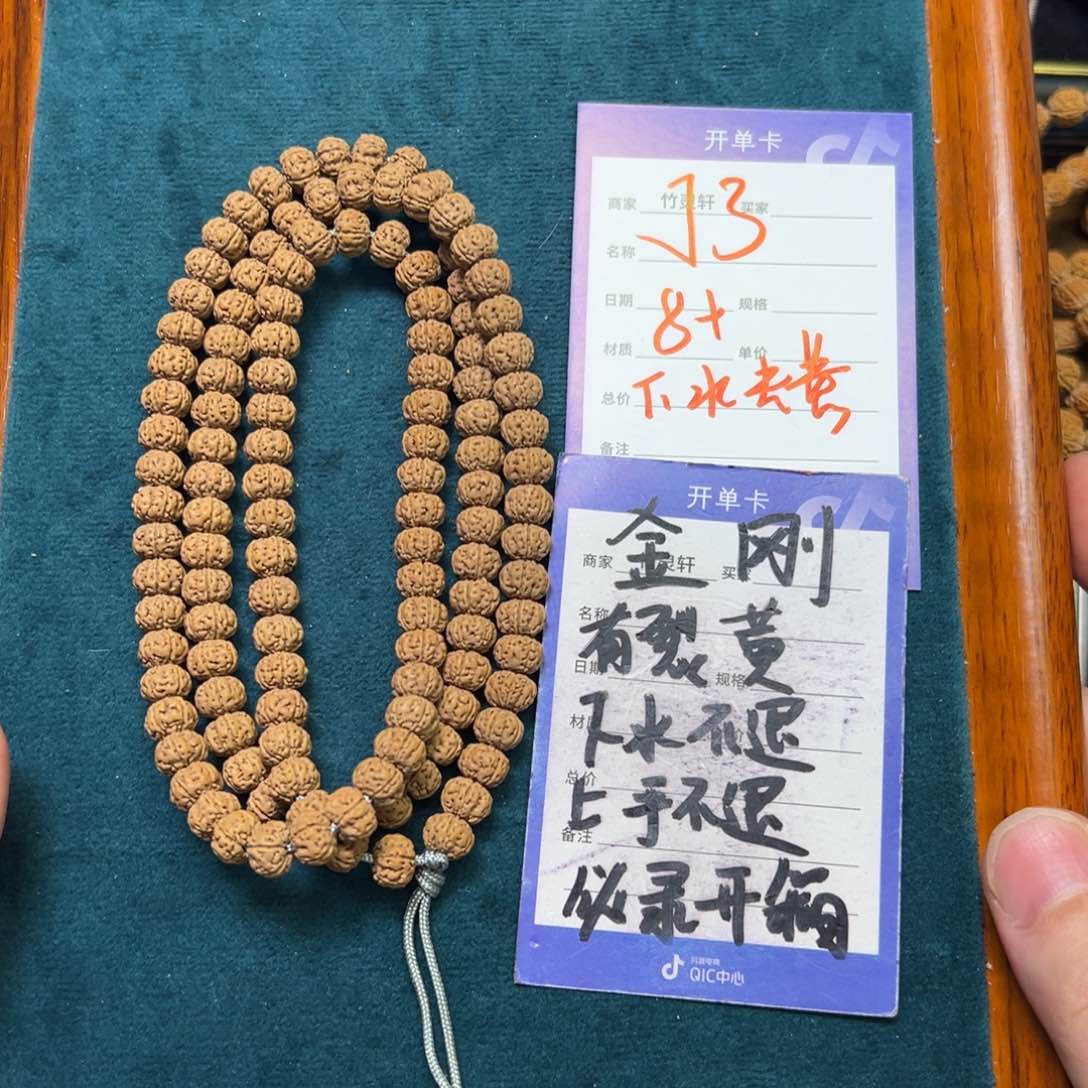 开单卡
商家 竹灵轩 买家
J3
名称
日期 8+ 规格
材质 单价
总价 下水去黄
备注
开单卡
金刚
商家 灵轩 买
名称
有裂黄
日期 规格
下水不退
材质
总价
上手不退
备注
必录开箱
抖音电商
QIC中心